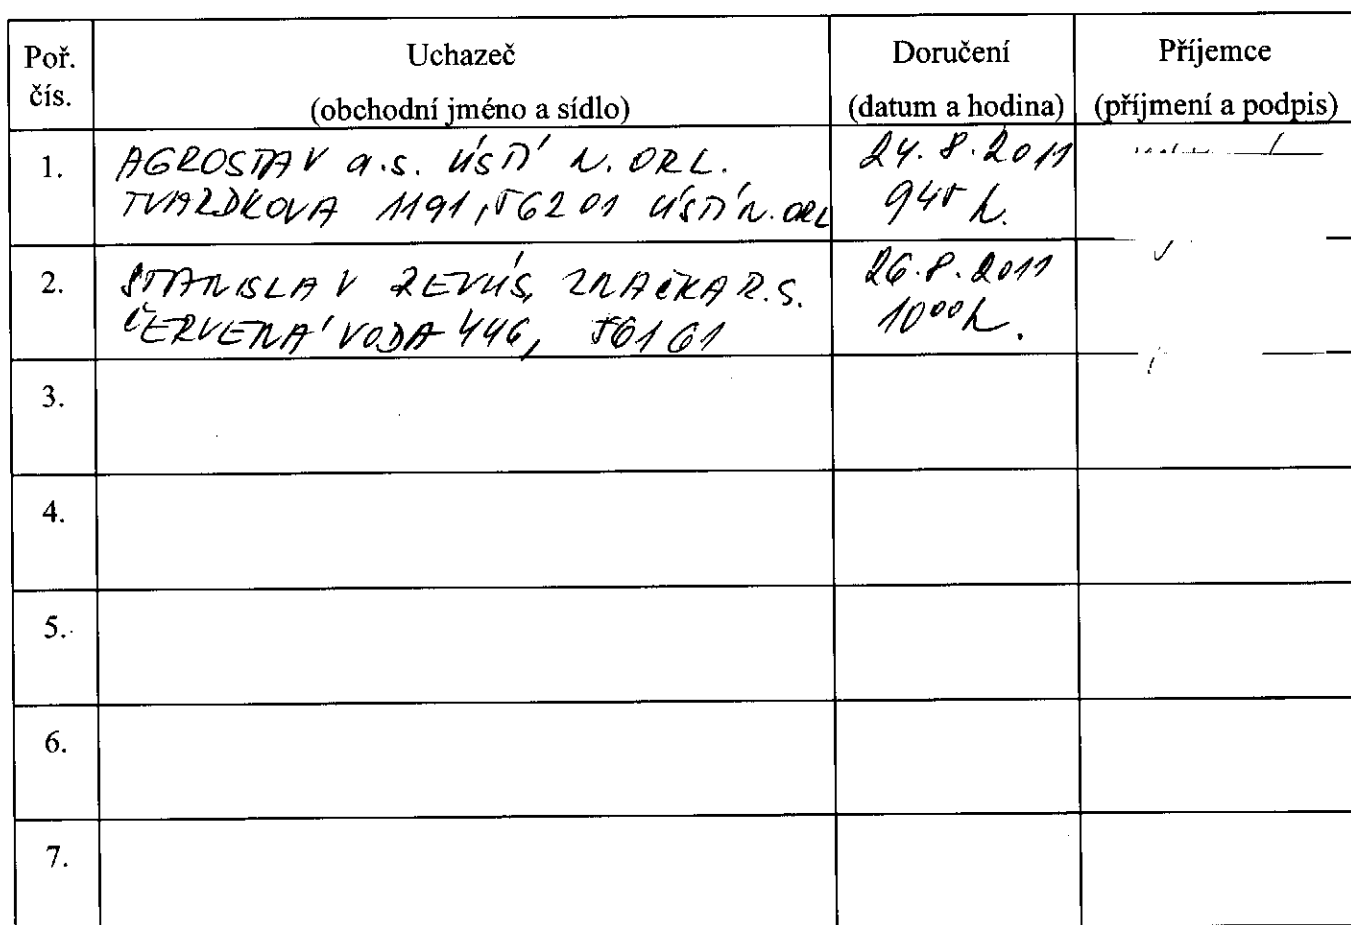 Poř. čís.
Uchazeč
(obchodní jméno a sídlo)
Doručení
(datum a hodina)
Příjemce
(příjmení a podpis)
1.
AGROSTAV a.s. ÚSTÍ N. ORL.
TVARDKOVA 1191, 56201 ÚSTÍ N. ORL
24.8.2011
945 h.
2.
STANISLAV ZNAČKA R.S.
ČERVENÁ VODA 446, 56161
26.8.2011
1000 h.
3.
4.
5.
6.
7.